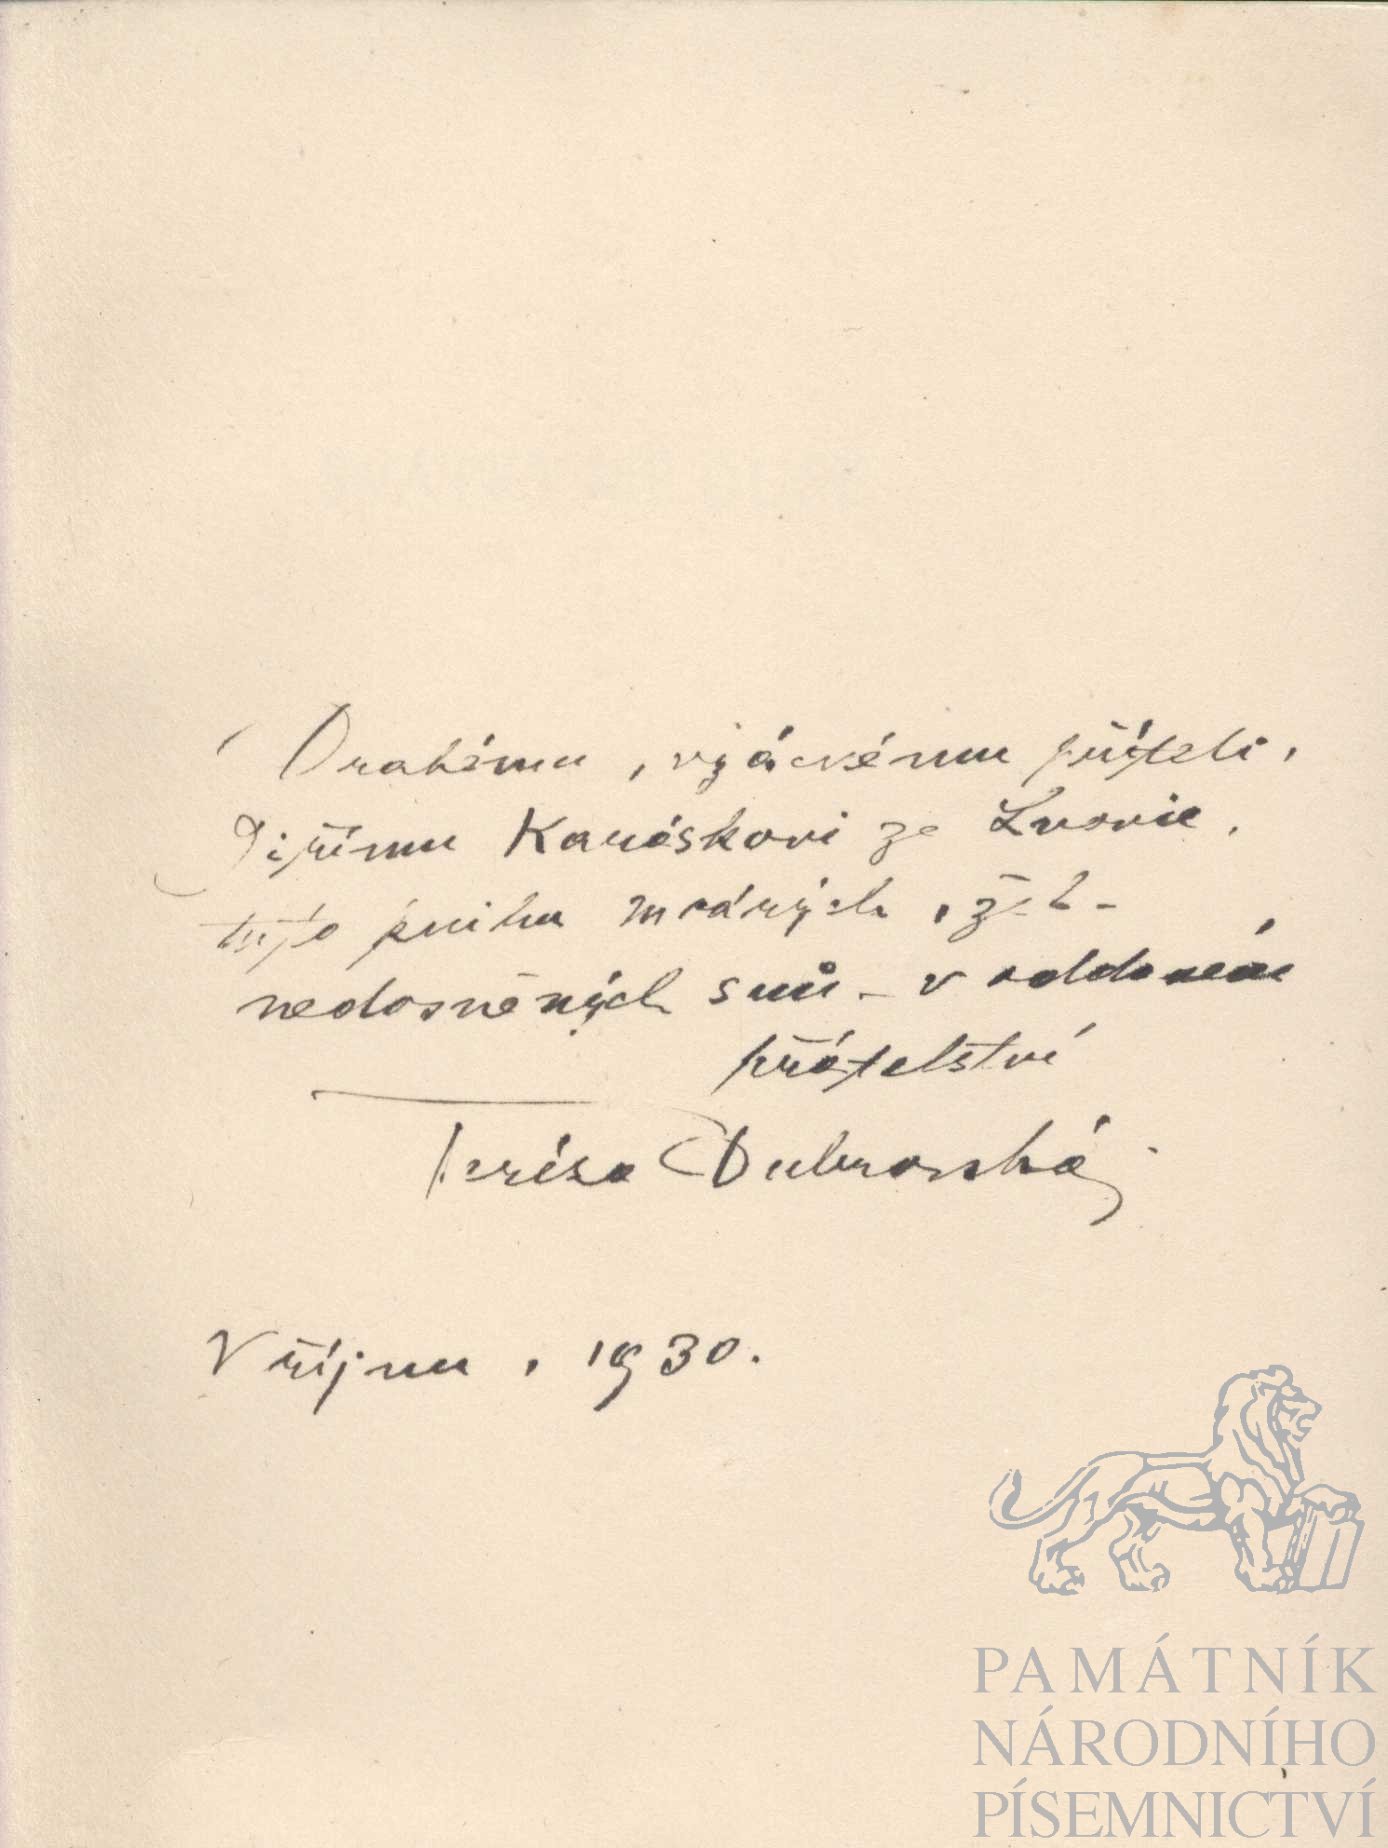 Drahému, vzácnému příteli,
Jiřímu Karáskovi ze Lvovic,
tuto knihu mrtvých, žel-
nedosněných snů - v oddaném
přátelství
Teréza Dubrovská
V říjnu, 1930.
PAMÁTNÍK
NÁRODNÍHO
PÍSEMNICTVÍ